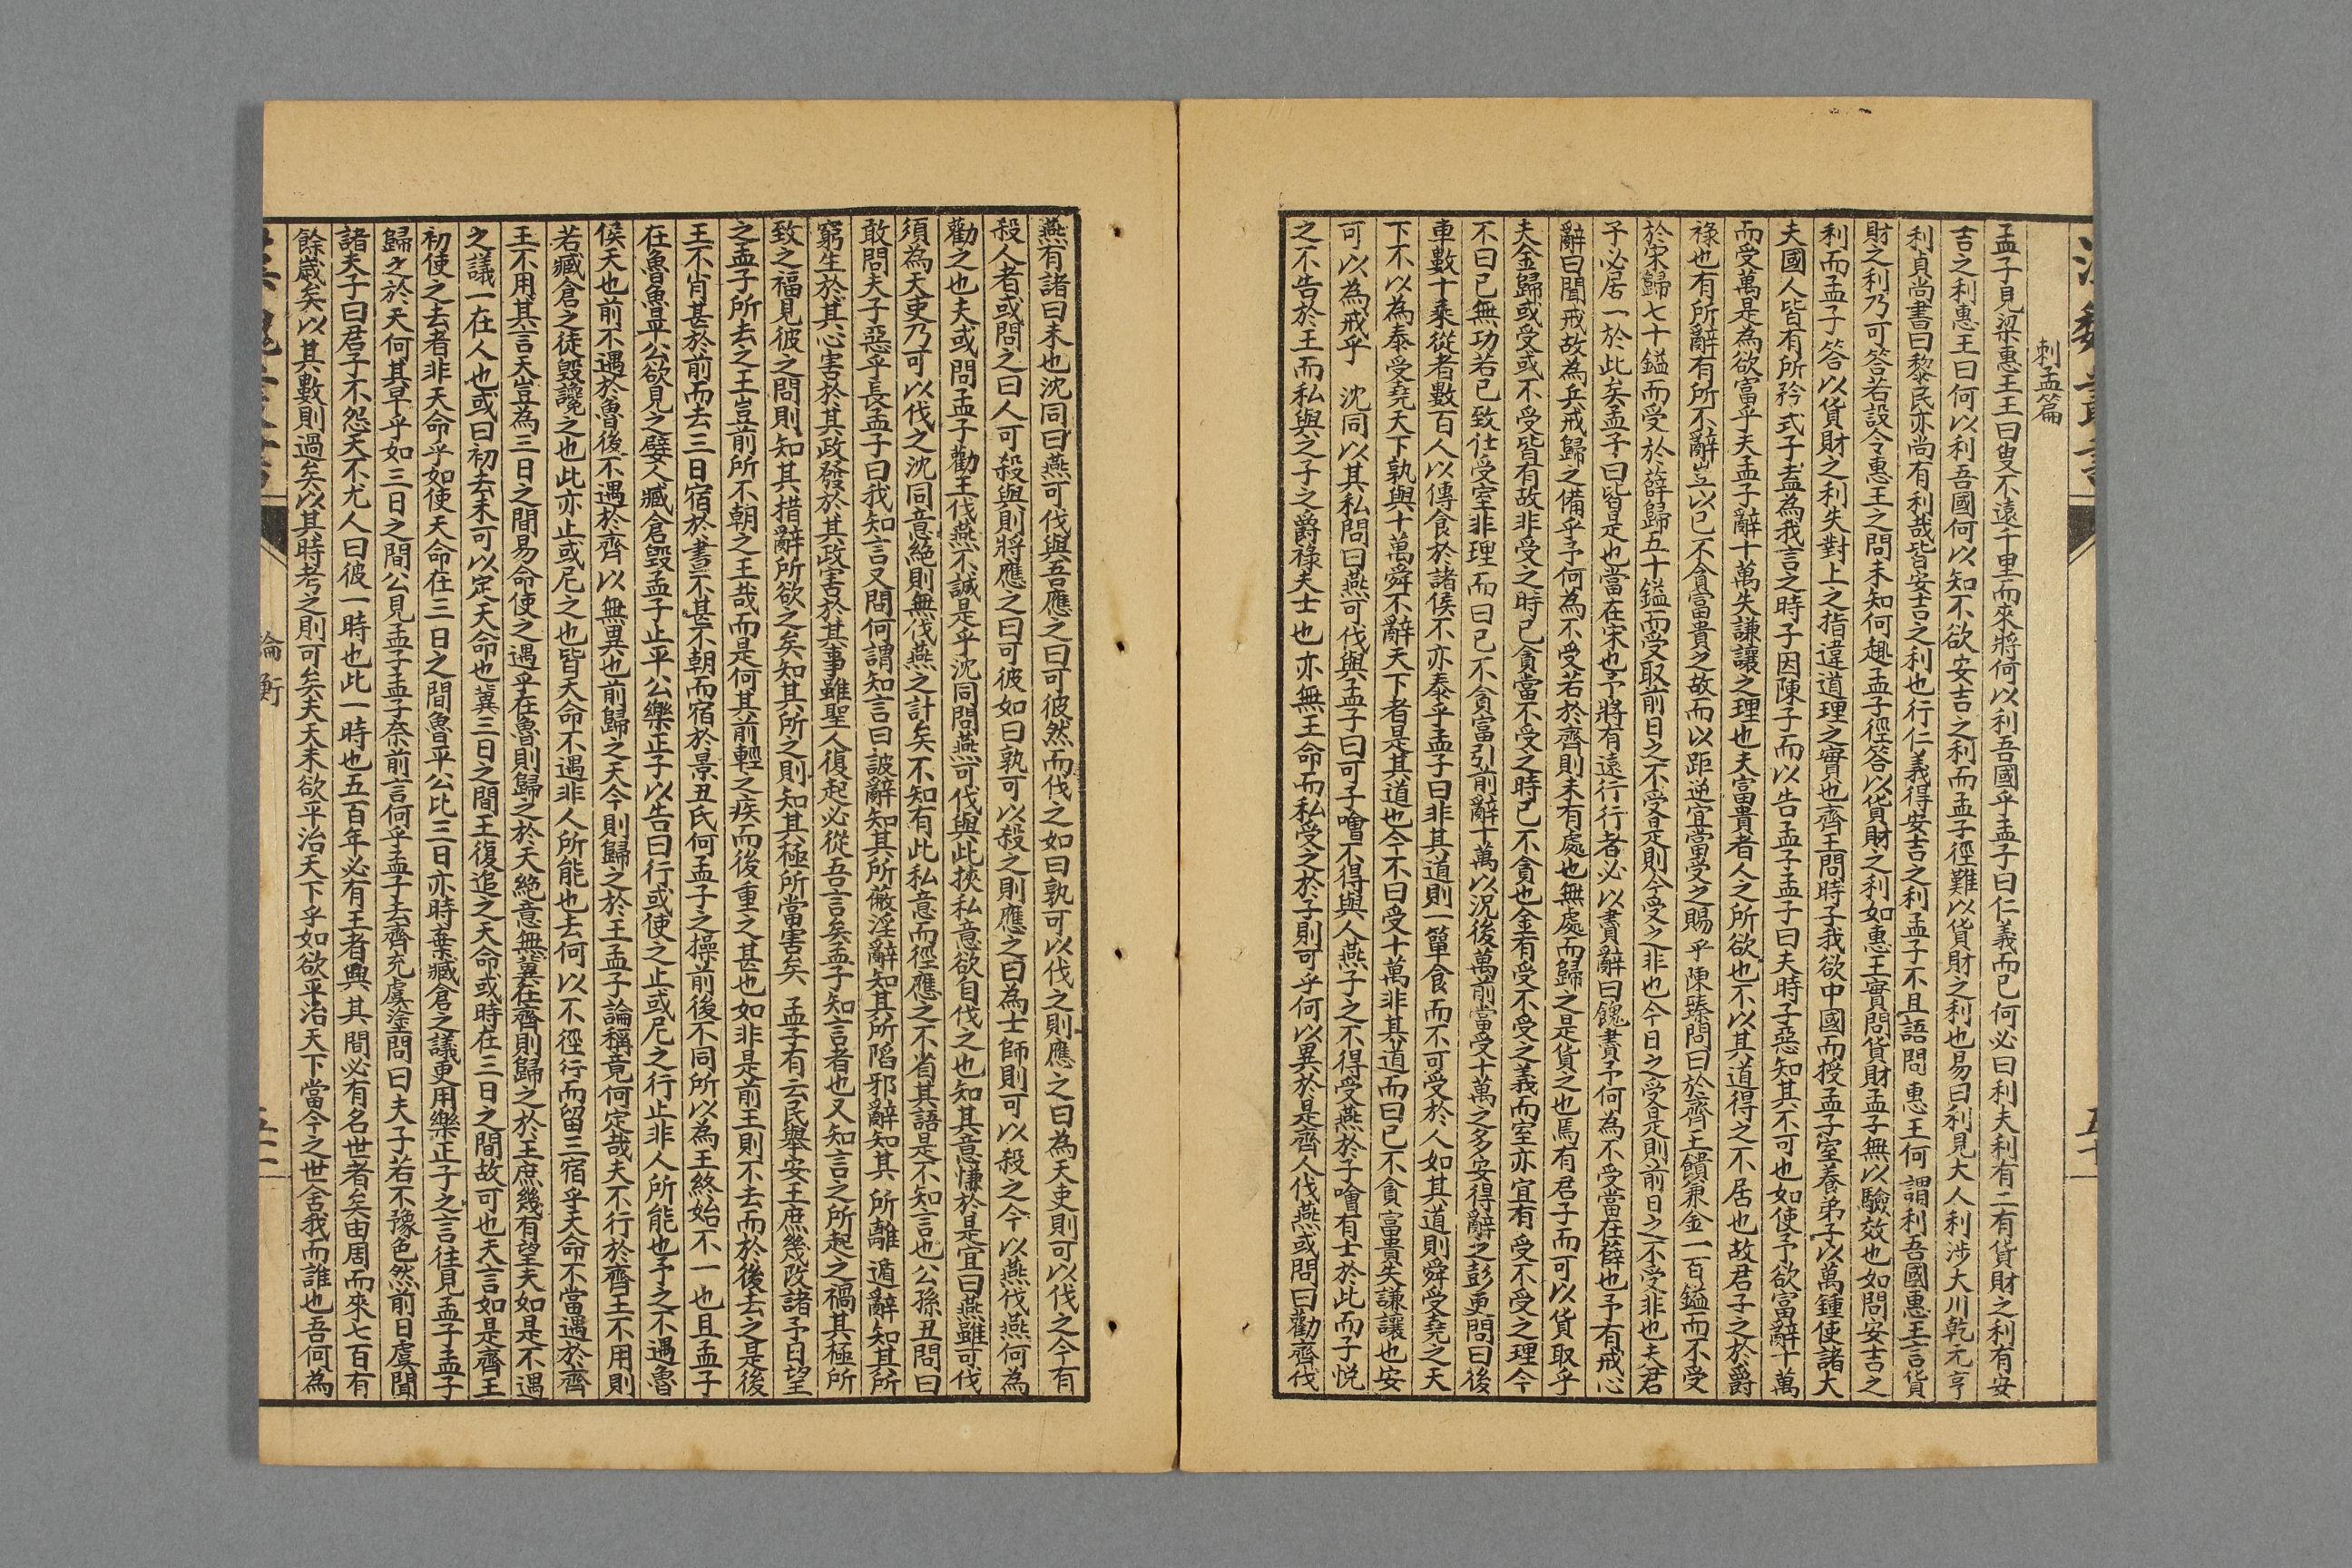 刺孟篇
孟子見梁惠王王曰叟不遠千里而來將何以利吾國乎孟子曰仁義而已何必曰利夫利有二有貨財之利有安
吉之利惠王曰何以利吾國何以知不欲安吉之利而孟子徑難以貨財之利也易曰利見大人利涉大川乾元亨
利貞尚書曰黎民亦尚有利哉皆安吉之利也行仁義得安吉之利孟子不且語問惠王何謂利吾國惠王言貨
財之利乃可答若設令惠王之問未知何趣孟子徑答以貨財之利如惠王實問貨財孟子無以驗效也如問安吉之
利而孟子答以貨財之利失對上之指違道理之實也齊王問時子我欲中國而授孟子室養弟子以萬鍾使諸大
夫國人皆有所矜式子盍為我言之時子因陳子而以告孟子孟子曰夫時子惡知其不可也如使予欲富辭十萬
而受萬是為欲富乎夫孟子辭十萬失謙讓之理也夫富貴者人之所欲也不以其道得之不居也故君子之於爵
祿也有所辭有所不辭豈以已不貪富貴之故而以距逆宜當受之賜乎陳臻問曰於齊王饋兼金一百鎰而不受
於宋歸七十鎰而受於薛歸五十鎰而受取前日之不受是則今受之非也今日之受是則前日之不受非也夫君
子必居一於此矣孟子曰皆是也當在宋也予將有遠行行者必以贐辭曰餽贐予何為不受當在薛也予有戒心
辭曰聞戒故為兵戒歸之備乎予何為不受若於齊則未有處也無處而歸之是貨之也焉有君子而可以貨取乎
夫金歸或受或不受皆有故非受之時已貪當不受之時已不貪也金有受不受之義而室亦宜有受不受之理今
不曰已無功若已致仕受室非理而曰已不貪富引前辭十萬以況後萬前當受十萬之多安得辭之彭更問曰後
車數十乘從者數百人以傳食於諸侯不亦泰乎孟子曰非其道則一簞食而不可受於人如其道則舜受堯之天
下不以為泰受堯天下孰與十萬舜不辭天下者是其道也今不曰受十萬非其道而曰已不貪富貴失謙讓也安
可以為戒乎　沈同以其私問曰燕可伐與孟子曰可子噲不得與人燕子之不得受燕於子噲有士於此而子悅
之不告於王而私與之子之爵祿夫士也亦無王命而私受之於子則可乎何以異於是齊人伐燕或問曰勸齊伐
燕有諸曰未也沈同曰燕可伐與吾應之曰可彼然而伐之如曰孰可以伐之則應之曰為天吏則可以伐之今有
殺人者或問之曰人可殺與則將應之曰可彼如曰孰可以殺之則應之曰為士師則可以殺之今以燕伐燕何為
勸之也夫或問孟子勸王伐燕不誠是乎沈同問燕可伐與此挾私意欲自伐之也知其意慊於是宜曰燕雖可伐
須為天吏乃可以伐之沈同意絕則無伐燕之計矣不知有此私意而徑應之不省其語是不知言也公孫丑問曰
敢問夫子惡乎長孟子曰我知言又問何謂知言曰詖辭知其所蔽淫辭知其所陷邪辭知其所離遁辭知其所
窮生於其心害於其政發於其政害於其事雖聖人復起必從吾言矣孟子知言者也又知言之所起之禍其極所
致之福見彼之問則知其措辭所欲之矣知其所之則知其極所當害矣　孟子有云民舉安王庶幾改諸予日望
之孟子所去之王豈前所不朝之王哉而是何其前輕之疾而後重之甚也如非是前王則不去而於後去之是後
王不肖甚於前而去三日宿於晝不甚不朝而宿於景丑氏何孟子之操前後不同所以為王終始不一也且孟子
在魯魯平公欲見之嬖人臧倉毀孟子止平公樂正子以告曰行或使之止或尼之行止非人所能也予之不遇魯
侯天也前不遇於魯後不遇於齊以無異也前歸之天今則歸之於王孟子論稱竟何定哉夫不行於齊王不用則
若臧倉之徒毀讒之也此亦止或尼之也皆天命不遇非人所能也去何以不徑行而留三宿乎天命不當遇於齊
王不用其言天豈為三日之間易命使之遇乎在魯則歸之於天絕意無冀在齊則歸之於王庶幾有望夫如是不遇
之議一在人也或曰初去未可以定天命也冀三日之間王復追之天命或時在三日之間故可也夫言如是齊王
初使之去者非天命乎如使天命在三日之間魯平公比三日亦時棄臧倉之議更用樂正子之言往見孟子孟子
歸之於天何其早乎如三日之間公見孟子孟子奈前言何乎孟子去齊充虞塗問曰夫子若不豫色然前日虞聞
諸夫子曰君子不怨天不尤人曰彼一時也此一時也五百年必有王者興其間必有名世者矣由周而來七百有
餘歲矣以其數則過矣以其時考之則可矣夫天未欲平治天下乎如欲平治天下當今之世舍我而誰也吾何為
論衡